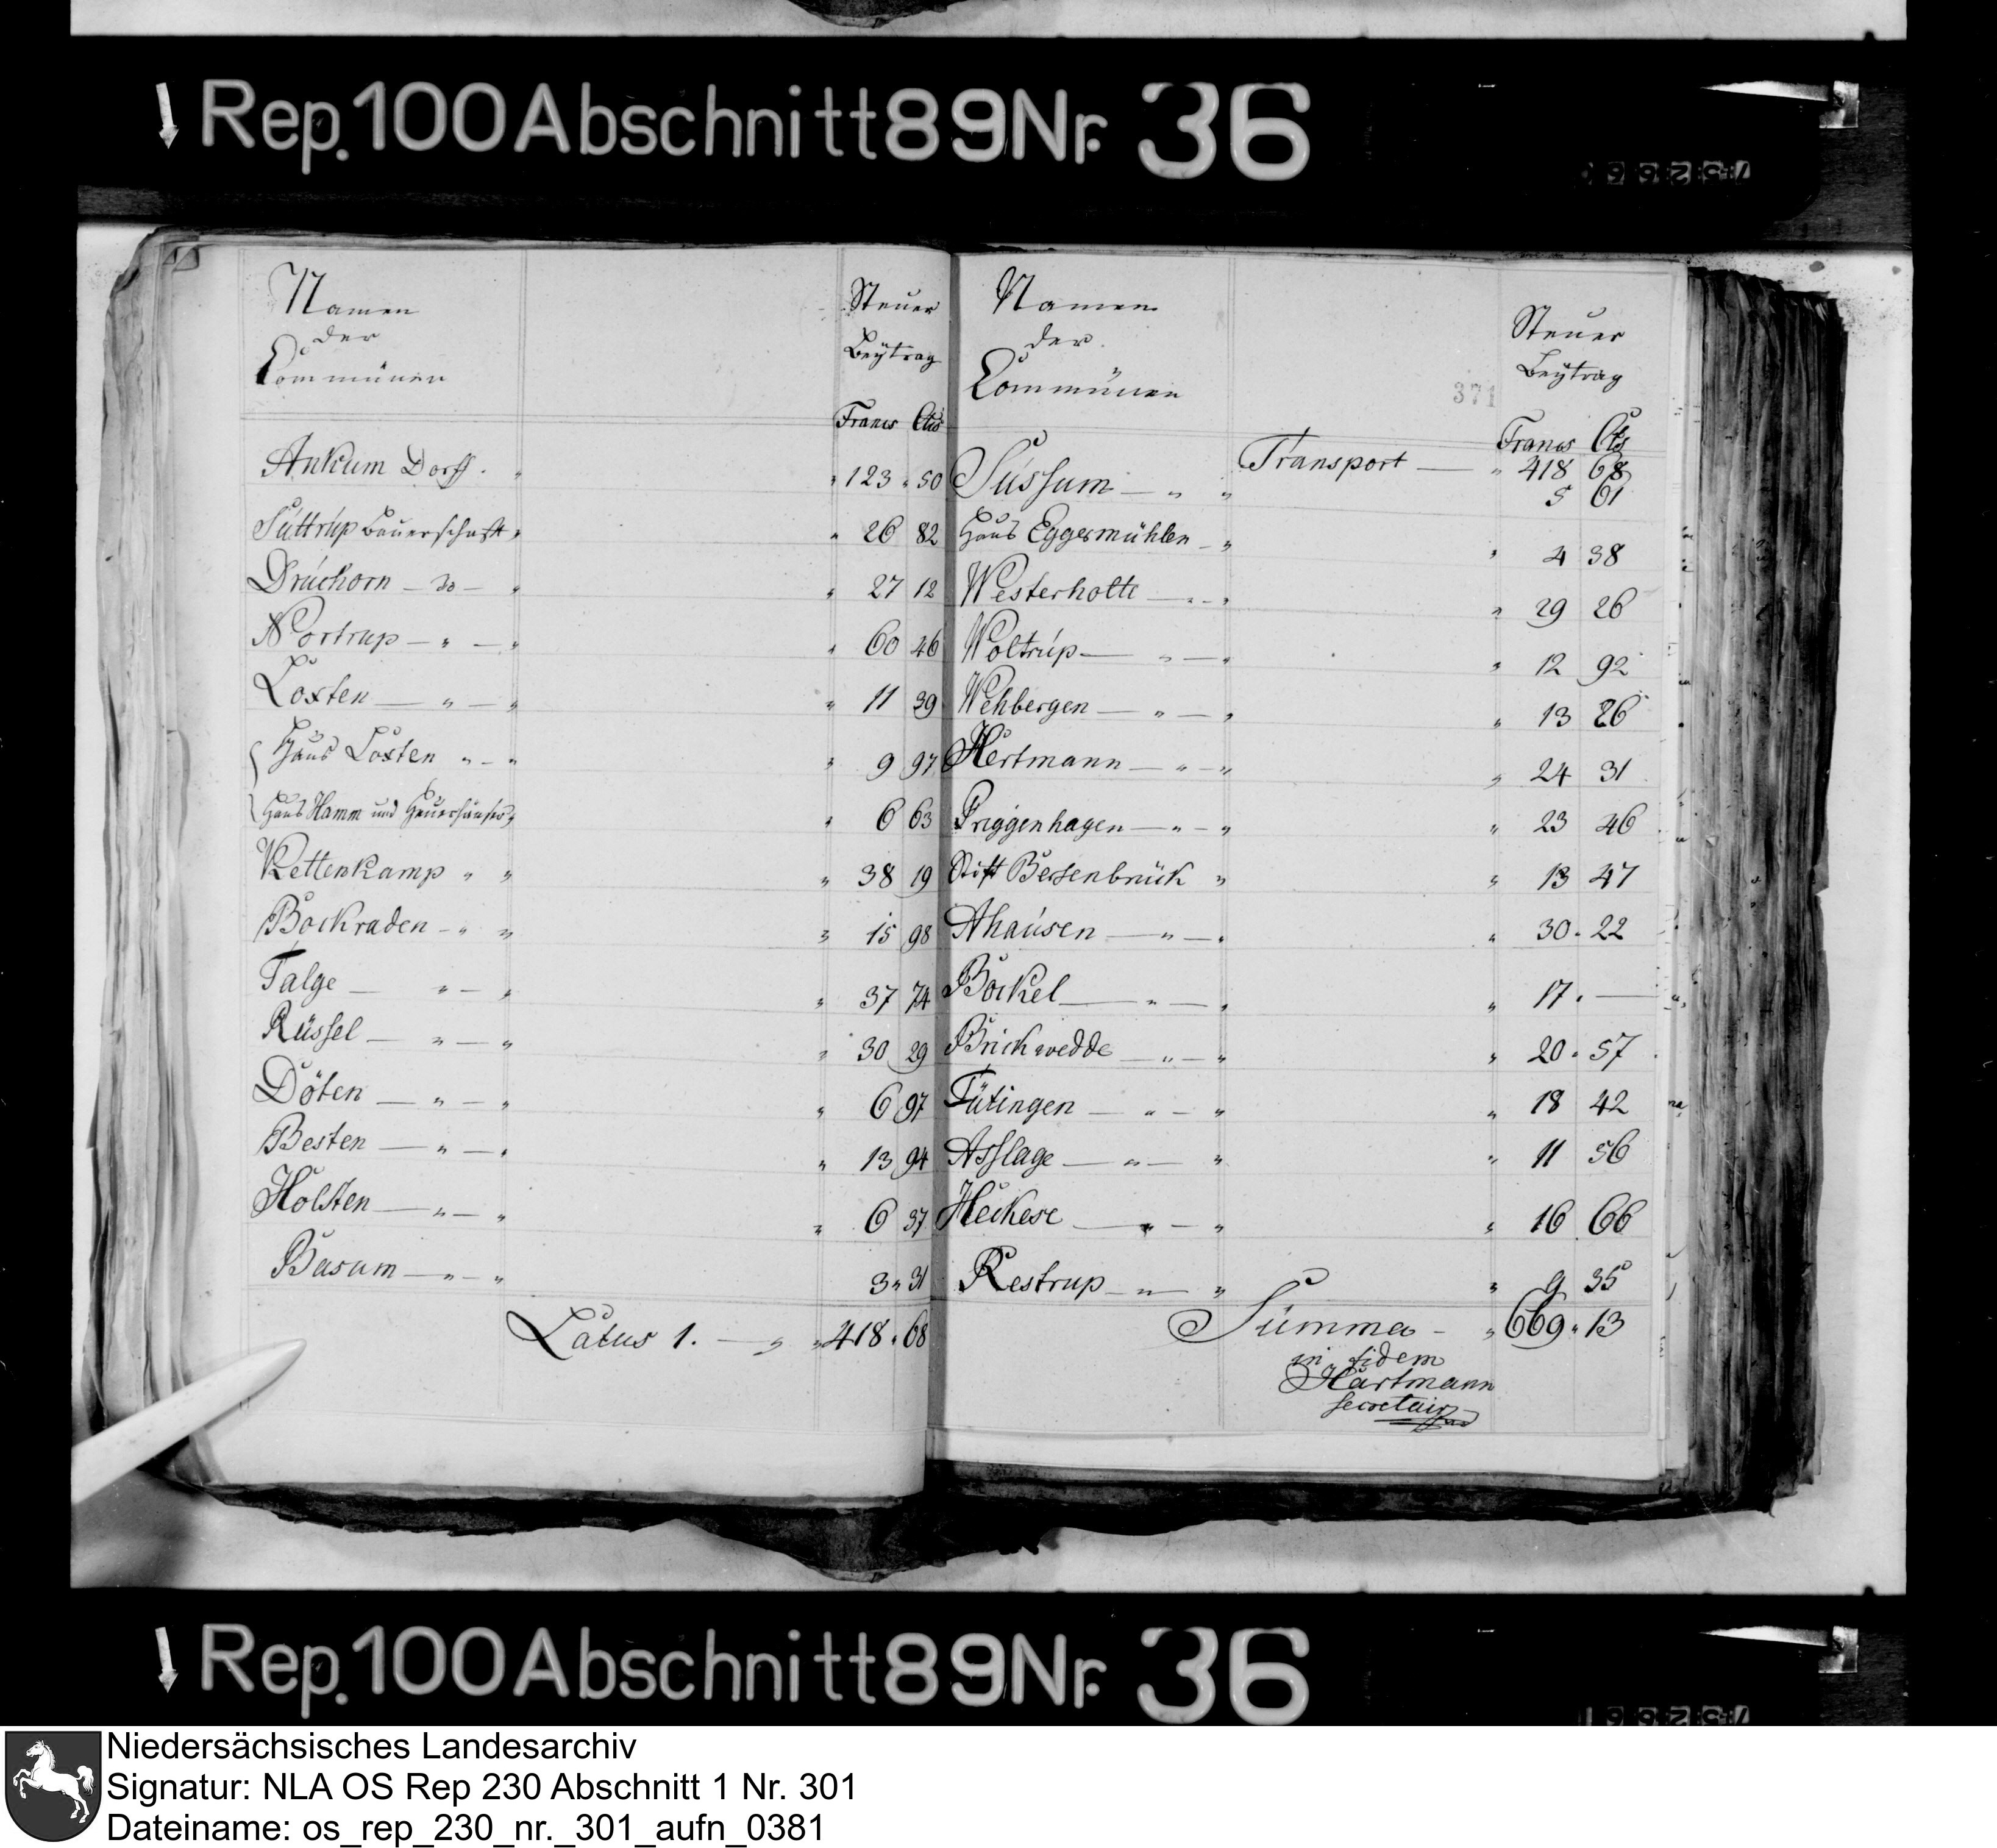 Rep. 100 Abschnitt 89 Nr. 36
Namen
der
Communen
Steuer
Beytrag
Francs Cts
Ankum Dorff. " " 123 " 50
Suttrup Bauerschaft " " 26 82
Druchorn — do — " " 27 12
Nortrup — " — " " 60 46
Loxten — " — " " 11 39
Haus Loxten " — " " 9 97
Haus Hamm und Heuerhäuser " " 6 63
Kettenkamp " " " 38 19
Bockraden — " " " 15 98
Talge — " — " " 37 74
Rüssel — " — " " 30 29
Döten — " — " " 6 97
Besten — " — " " 13 94
Holsten — " — " " 6 37
Basum — " — " 3 " 31
Latus 1. — " " 418 " 68
Namen
der
Communen
371
Steuer
Beytrag
Francs Cts
Transport — " 418 68
Sussum — " " 5 61
Haus Eggermühlen — " " 4 38
Westerholte — " — " " 29 26
Woltrup — " — " " 12 92
Wehbergen — " — " " 13 26
Hertmann — " — " " 24 31
Priggenhagen — " — " " 23 46
Stift Bersenbrück " " 13 47
Ahausen — " — " " 30 " 22
Bockel — " — " " 17 " —
Brickwedde — " — " " 20 " 57
Tütingen — " — " " 18 42
Asslage — " — " " 11 56
Heckese — " — " " 16 66
Restrup — " — " " 9 35
Summa — " 669 " 13
in fidem
Hartmann
secretair
Rep. 100 Abschnitt 89 Nr. 36
Niedersächsisches Landesarchiv
Signatur: NLA OS Rep 230 Abschnitt 1 Nr. 301
Dateiname: os_rep_230_nr._301_aufn_0381